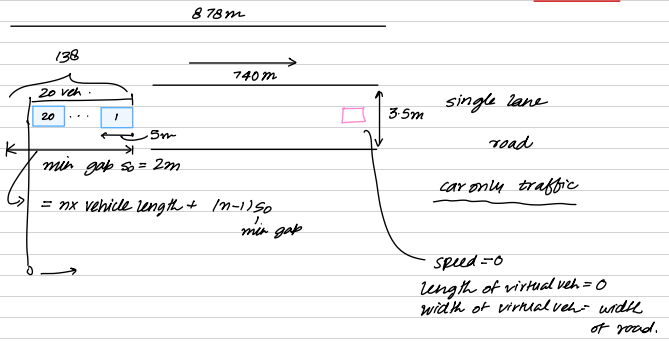 878m
138
740m
20 veh.
20 ... 1
3.5m
5m
single lane
road
car only traffic
min gap s₀ = 2m
= nx vehicle length + (n-1)s₀
min gap
0
speed=0
length of virtual veh = 0
width of virtual veh = width
of road.